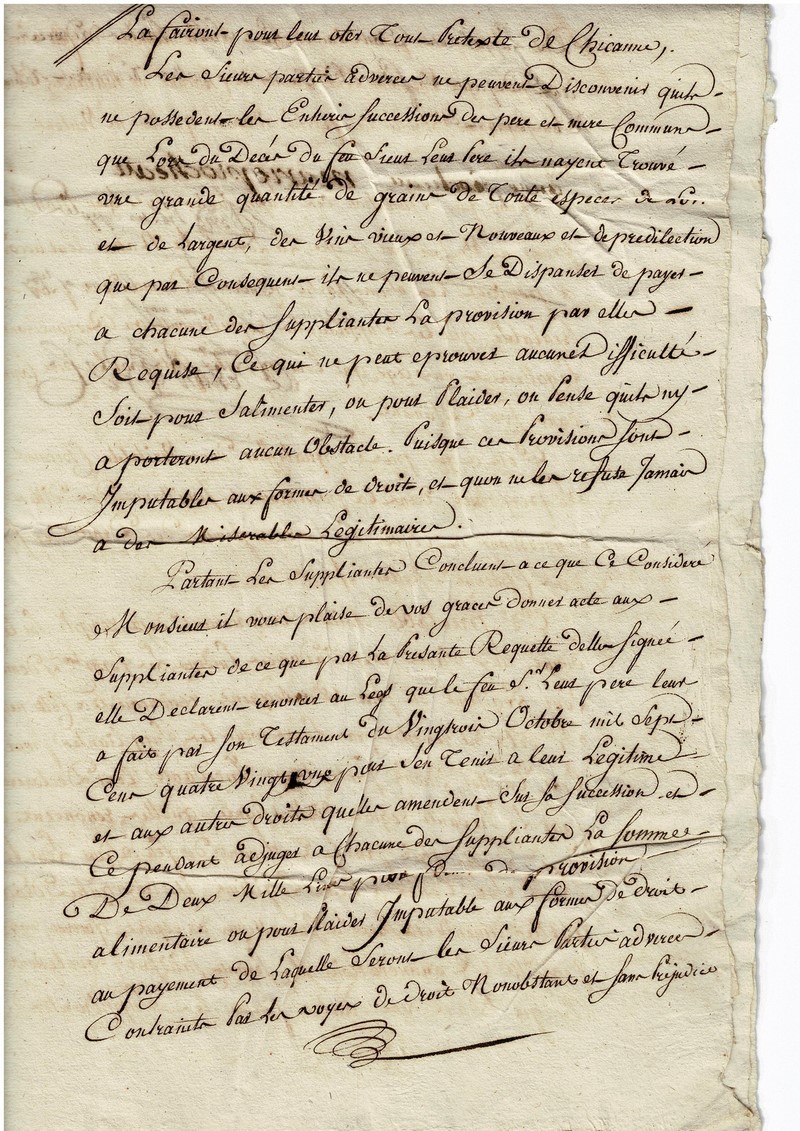 La fairont pour leur oter Tout Pretexte de Chicanne,.
Les Sieurs parties adverces ne peuvent Disconvenir quils
ne possedent les Entieris Successions des pere et mere Communs
que Lors du Decés du feu Sieur Leur Pere ils nayent Trouvé
une grande quantité de grains de Toute especes de Lor.
et de Largent, des Vins vieux et Nouveaux et de predilection
que par Consequent ils ne peuvent Se Dispanser de payer
a chacune des Suppliantes La provision par elles
Requise, Ce qui ne peut eprouver aucunes difficulté
Soit pour Salimenter, ou pour Plaider, on Pense quils ny
aporteront aucun Obstacle. Puisque ces Provisions Sont
Imputables aux formes de droit, et quon ne les refuse Jamais
a des Miserables Legitimaires.
Partant Les Suppliantes Concluent a ce que Ce Consideré
Monsieur il vous plaise de vos graces donner acte aux
Suppliantes de ce que par La Presante Requette delles Signée
elle Declarent renoncer au Legs que le feu S.r Leur pere leur
a fait par Son Testament du Vingtrois Octobre mil Sept
Cens quatre Vingt une pour Sen Tenir a leur Legitime
et aux autres droits quelles amendent Sur Sa Succession et
Ce pendant adjuger a Chacune des Suppliantes La Somme
De Deux Mille Livres pour provision
alimentaire ou pour Plaider Imputable aux formes de droit
au payement de Laquelle Seront les Sieurs Parties adverces
Contraints Par Les voyes de droit Nonobstant et sans Prejudice